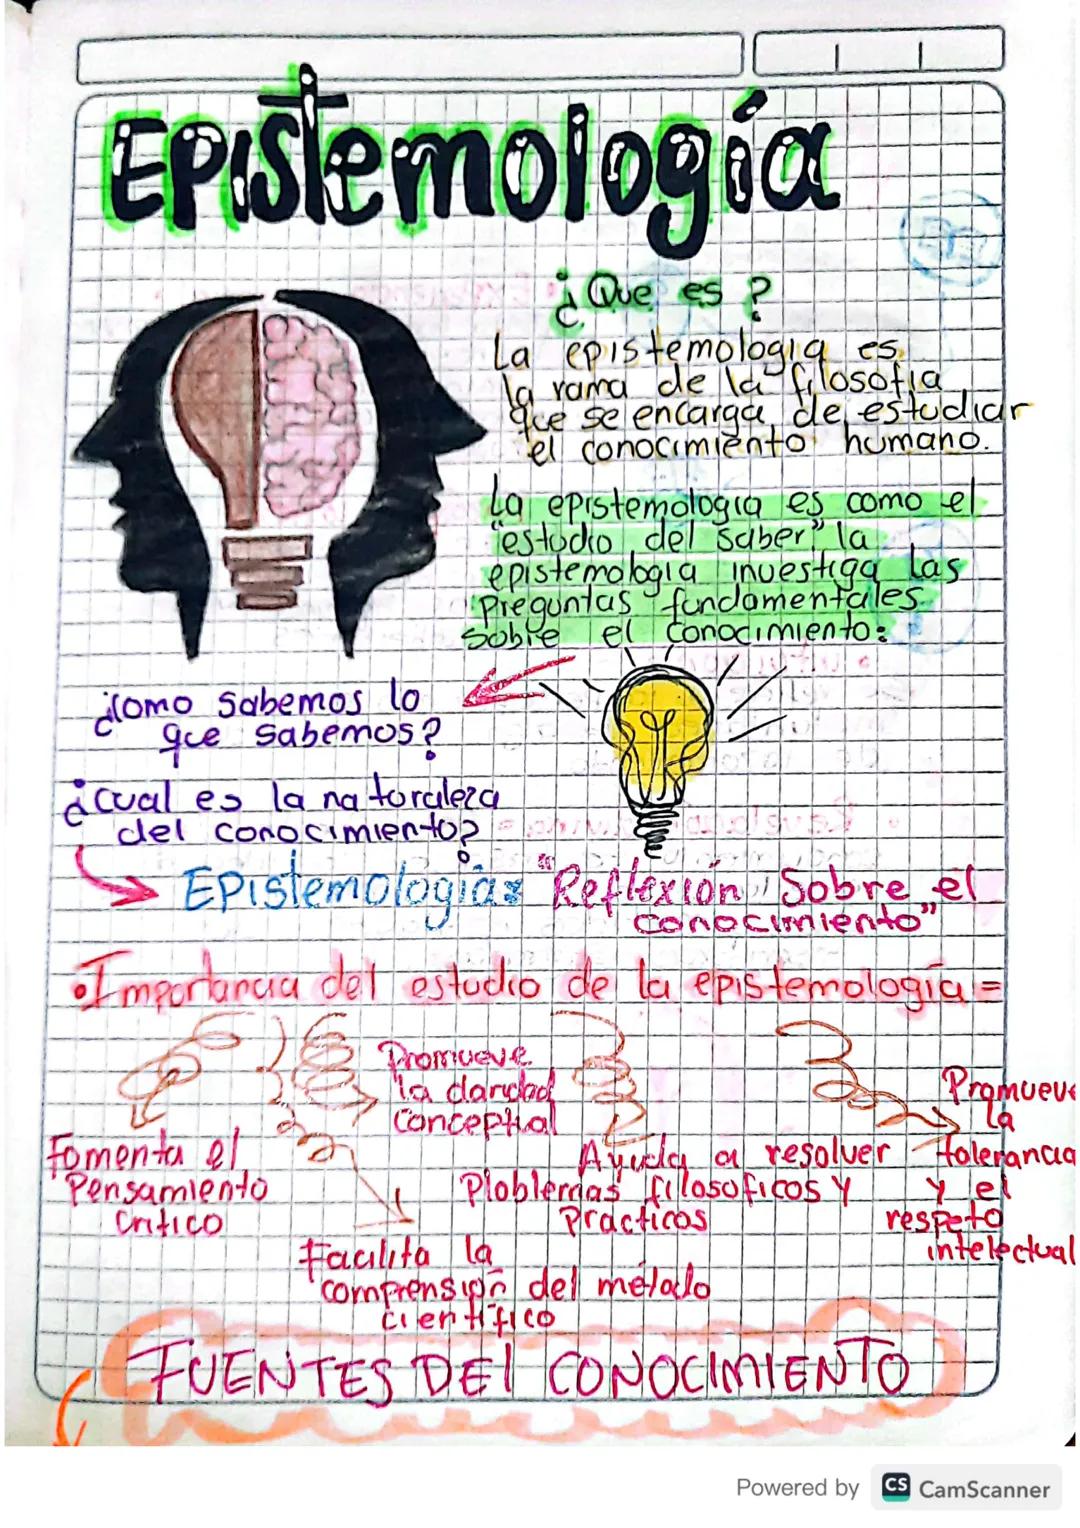 Epistemología
¿Que es?
La epistemologia es
la rama de la filosofia
que se encarga de estudiar
el conocimiento humano.
La epistemologia es como el
"estudio del saber" la
epistemologia investiga las
preguntas fundamentales
sobre el conocimiento:
¿Como sabemos lo
que sabemos?
¿Cual es la naturaleza
del conocimiento?
Epistemología: "Reflexión Sobre el
conocimiento"
•Importancia del estudio de la epistemología =
Promueve
la claridad
conceptual
Promueve
la
tolerancia
y el
respeto
intelectual
Fomenta el
Pensamiento
Critico
Ayuda a resolver
Ploblemas filosoficos y
Practicos
Facilita la
comprensión del método
cientifico
FUENTES DEl CONOCIMIENTO
Powered by CS CamScanner